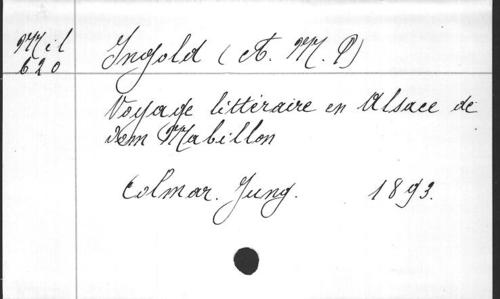 Mil
620
Ingold (A. M. P)
Voyage littéraire en Alsace de
Dom Mabillon
Colmar. Jung. 1893.